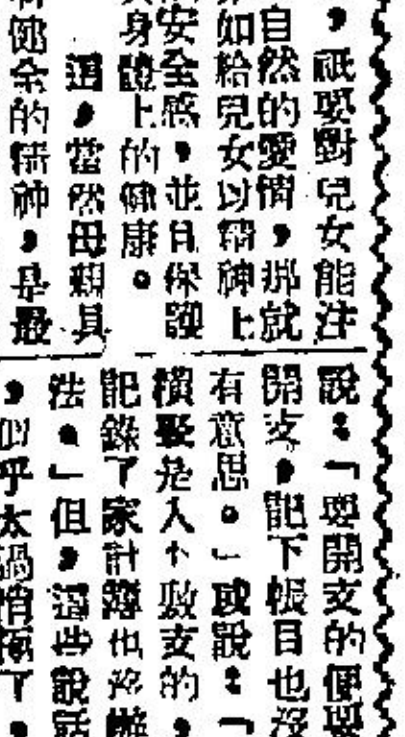 ，祇要對兒女能注
自然的愛情，那就
如給兒女以精神上
安全感，並且保護
身體上的健康。
這，當然母親具
健全的精神，是最
說：「要開支的便要
開支，記下帳目也沒
有意思。」或說：「
橫豎是入不敷支的，
記錄了家計簿也沒辦
法。」但，這些說話
，似乎太過消極了，